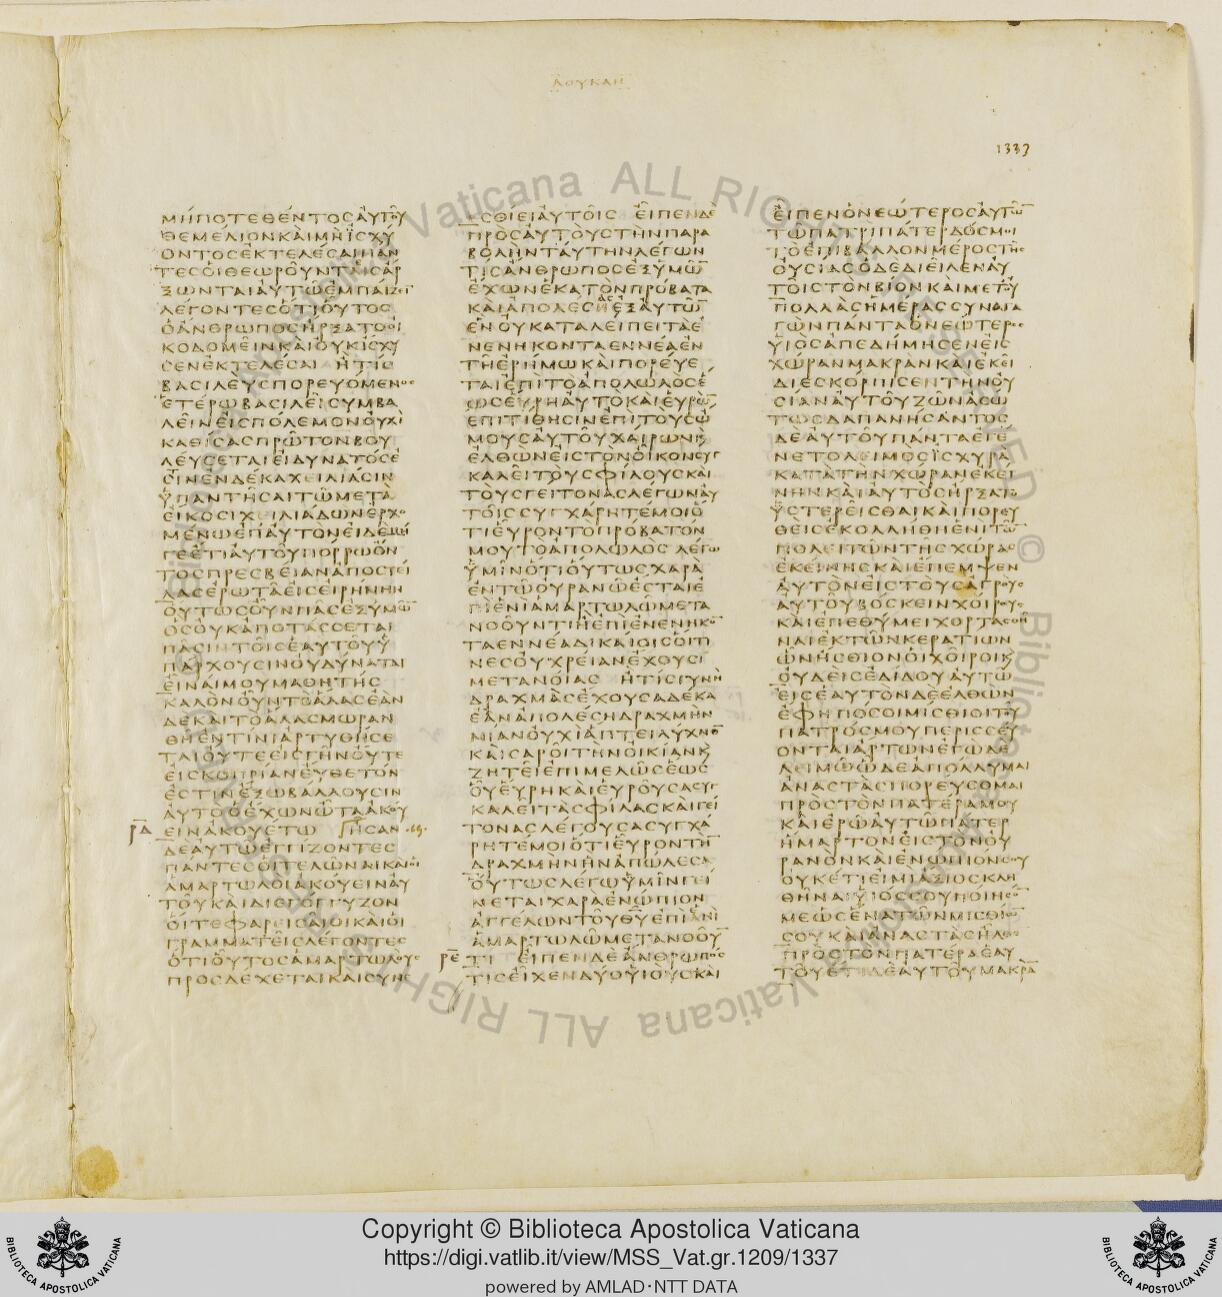 ΛΟΥΚΑΝ
1333
ΜΗΠΟΤΕΘΕΝΤΟΣΑΥΤΟΥ
ΘΕΜΕΛΙΟΝΚΑΙΜΗΙΣΧΥ
ΟΝΤΟΣΕΚΤΕΛΕΣΑΙΠΑΝ
ΤΕΣΟΙΘΕΩΡΟΥΝΤΕΣΑΡ
ΞΩΝΤΑΙΑΥΤΩΕΜΠΑΙΖΕΙ
ΛΕΓΟΝΤΕΣΟΤΙΟΥΤΟΣ
ΟΑΝΘΡΩΠΟΣΗΡΞΑΤΟΟΙ
ΚΟΔΟΜΕΙΝΚΑΙΟΥΚΙΣΧΥ
ΣΕΝΕΚΤΕΛΕΣΑΙ ΗΤΙΣ
ΒΑΣΙΛΕΥΣΠΟΡΕΥΟΜΕΝΟΣ
ΕΤΕΡΩΒΑΣΙΛΕΙΣΥΜΒΑ
ΛΕΙΝΕΙΣΠΟΛΕΜΟΝΟΥΧΙ
ΚΑΘΙΣΑΣΠΡΩΤΟΝΒΟΥ
ΛΕΥΣΕΤΑΙΕΙΔΥΝΑΤΟΣΕ
ΣΤΙΝΕΝΔΕΚΑΧΕΙΛΙΑΣΙΝ
ΥΠΑΝΤΗΣΑΙΤΩΜΕΤΑ
ΕΙΚΟΣΙΧΕΙΛΙΑΔΩΝΕΡΧΟ
ΜΕΝΩΕΠΑΥΤΟΝΕΙΔΕΜΗ
ΓΕΕΤΙΑΥΤΟΥΠΟΡΡΩΟΝ
ΤΟΣΠΡΕΣΒΕΙΑΝΑΠΟΣΤΕΙ
ΛΑΣΕΡΩΤΑΕΙΣΕΙΡΗΝΗΝ
ΟΥΤΩΣΟΥΝΠΑΣΕΞΥΜΩ̅
ΟΣΟΥΚΑΠΟΤΑΣΣΕΤΑΙ
ΠΑΣΙΝΤΟΙΣΕΑΥΤΟΥΥ
ΠΑΡΧΟΥΣΙΝΟΥΔΥΝΑΤΑΙ
ΕΙΝΑΙΜΟΥΜΑΘΗΤΗΣ
ΚΑΛΟΝΟΥΝΤΟΑΛΑΣΕΑΝ
ΔΕΚΑΙΤΟΑΛΑΣΜΩΡΑΝ
ΘΗΕΝΤΙΝΙΑΡΤΥΘΗΣΕ
ΤΑΙΟΥΤΕΕΙΣΓΗΝΟΥΤΕ
ΕΙΣΚΟΠΡΙΑΝΕΥΘΕΤΟΝ
ΕΣΤΙΝΕΞΩΒΑΛΛΟΥΣΙΝ
ΑΥΤΟΟΕΧΩΝΩΤΑΑΚΟΥ
ΕΙΝΑΚΟΥΕΤΩ ΗΣΑΝ
ΔΕΑΥΤΩΕΓΓΙΖΟΝΤΕΣ
ΠΑΝΤΕΣΟΙΤΕΛΩΝΑΙΚΑΙΟΙ
ΑΜΑΡΤΩΛΟΙΑΚΟΥΕΙΝΑΥ
ΤΟΥΚΑΙΔΙΕΓΟΓΓΥΖΟΝ
ΟΙΤΕΦΑΡΕΙΣΑΙΟΙΚΑΙΟΙ
ΓΡΑΜΜΑΤΕΙΣΛΕΓΟΝΤΕΣ
ΟΤΙΟΥΤΟΣΑΜΑΡΤΩΛΟΥΣ
ΠΡΟΣΔΕΧΕΤΑΙΚΑΙΣΥΝΕ
ΣΘΙΕΙΑΥΤΟΙΣ ΕΙΠΕΝΔΕ
ΠΡΟΣΑΥΤΟΥΣΤΗΝΠΑΡΑ
ΒΟΛΗΝΤΑΥΤΗΝΛΕΓΩΝ
ΤΙΣΑΝΘΡΩΠΟΣΕΞΥΜΩ̅
ΕΧΩΝΕΚΑΤΟΝΠΡΟΒΑΤΑ
ΚΑΙΑΠΟΛΕΣΗΕΞΑΥΤΩ̅
ΕΝΟΥΚΑΤΑΛΕΙΠΕΙΤΑΕ
ΝΕΝΗΚΟΝΤΑΕΝΝΕΑΕΝ
ΤΗΕΡΗΜΩΚΑΙΠΟΡΕΥΕ
ΤΑΙΕΠΙΤΟΑΠΟΛΩΛΟΣΕ
ΩΣΕΥΡΗΑΥΤΟΚΑΙΕΥΡΩ̅
ΕΠΙΤΙΘΗΣΙΝΕΠΙΤΟΥΣΩ
ΜΟΥΣΑΥΤΟΥΧΑΙΡΩΝΚ
ΕΛΘΩΝΕΙΣΤΟΝΟΙΚΟΝΣΥΓ
ΚΑΛΕΙΤΟΥΣΦΙΛΟΥΣΚΑΙ
ΤΟΥΣΓΕΙΤΟΝΑΣΛΕΓΩΝΑΥ
ΤΟΙΣΣΥΓΧΑΡΗΤΕΜΟΙΟ
ΤΙΕΥΡΟΝΤΟΠΡΟΒΑΤΟΝ
ΜΟΥΤΟΑΠΟΛΩΛΟΣ ΛΕΓΩ
ΥΜΙΝΟΤΙΟΥΤΩΣΧΑΡΑ
ΕΝΤΩΟΥΡΑΝΩΕΣΤΑΙΕ
ΠΙΕΝΙΑΜΑΡΤΩΛΩΜΕΤΑ
ΝΟΟΥΝΤΙΗΕΠΙΕΝΕΝΗΚΟ
ΤΑΕΝΝΕΑΔΙΚΑΙΟΙΣΟΙΤΙ
ΝΕΣΟΥΧΡΕΙΑΝΕΧΟΥΣΙ
ΜΕΤΑΝΟΙΑΣ ΗΤΙΣΓΥΝΗ
ΔΡΑΧΜΑΣΕΧΟΥΣΑΔΕΚΑ
ΕΑΝΑΠΟΛΕΣΗΔΡΑΧΜΗΝ
ΜΙΑΝΟΥΧΙΑΠΤΕΙΛΥΧΝΟ̅
ΚΑΙΣΑΡΟΙΤΗΝΟΙΚΙΑΝΚ
ΖΗΤΕΙΕΠΙΜΕΛΩΣΕΩΣ
ΟΥΕΥΡΗΚΑΙΕΥΡΟΥΣΑΣΥΓ
ΚΑΛΕΙΤΑΣΦΙΛΑΣΚΑΙΓΕΙ
ΤΟΝΑΣΛΕΓΟΥΣΑΣΥΓΧΑ
ΡΗΤΕΜΟΙΟΤΙΕΥΡΟΝΤΗ
ΔΡΑΧΜΗΝΗΝΑΠΩΛΕΣΑ
ΟΥΤΩΣΛΕΓΩΥΜΙΝΓΕΙ
ΝΕΤΑΙΧΑΡΑΕΝΩΠΙΟΝ
ΑΓΓΕΛΩΝΤΟΥΘΥΕΠΙΕΝΙ
ΑΜΑΡΤΩΛΩΜΕΤΑΝΟΟΥ̅
ΤΙ ΕΙΠΕΝΔΕΑΝΘΡΩΠΟΣ
ΤΙΣΕΙΧΕΝΔΥΟΥΙΟΥΣΚΑΙ
ΕΙΠΕΝΟΝΕΩΤΕΡΟΣΑΥΤΩ̅
ΤΩΠΑΤΡΙΠΑΤΕΡΔΟΣΜΟΙ
ΤΟΕΠΙΒΑΛΛΟΝΜΕΡΟΣΤΗΣ
ΟΥΣΙΑΣΟΔΕΔΙΕΙΛΕΝΑΥ
ΤΟΙΣΤΟΝΒΙΟΝΚΑΙΜΕΤΟΥ
ΠΟΛΛΑΣΗΜΕΡΑΣΣΥΝΑΓΑ
ΓΩΝΠΑΝΤΑΟΝΕΩΤΕΡΟΣ
ΥΙΟΣΑΠΕΔΗΜΗΣΕΝΕΙΣ
ΧΩΡΑΝΜΑΚΡΑΝΚΑΙΕΚΕΙ
ΔΙΕΣΚΟΡΠΙΣΕΝΤΗΝΟΥ
ΣΙΑΝΑΥΤΟΥΖΩΝΑΣΩ
ΤΩΣΔΑΠΑΝΗΣΑΝΤΟΣ
ΔΕΑΥΤΟΥΠΑΝΤΑΕΓΕ
ΝΕΤΟΛΕΙΜΟΣΙΣΧΥΡΑ
ΚΑΤΑΤΗΝΧΩΡΑΝΕΚΕΙ
ΝΗΝΚΑΙΑΥΤΟΣΗΡΞΑΤΟ
ΥΣΤΕΡΕΙΣΘΑΙΚΑΙΠΟΡΕΥ
ΘΕΙΣΕΚΟΛΛΗΘΗΕΝΙΤΩ̅
ΠΟΛΕΙΤΩΝΤΗΣΧΩΡΑΣ
ΕΚΕΙΝΗΣΚΑΙΕΠΕΜΨΕΝ
ΑΥΤΟΝΕΙΣΤΟΥΣΑΓΡΟΥΣ
ΑΥΤΟΥΒΟΣΚΕΙΝΧΟΙΡΟΥΣ
ΚΑΙΕΠΕΘΥΜΕΙΧΟΡΤΑΣΘΗ
ΝΑΙΕΚΤΩΝΚΕΡΑΤΙΩΝ
ΩΝΗΣΘΙΟΝΟΙΧΟΙΡΟΙΚ
ΟΥΔΕΙΣΕΔΙΔΟΥΑΥΤΩ
ΕΙΣΕΑΥΤΟΝΔΕΕΛΘΩΝ
ΕΦΗΠΟΣΟΙΜΙΣΘΙΟΙΤΟΥ
ΠΑΤΡΟΣΜΟΥΠΕΡΙΣΣΕΥ
ΟΝΤΑΙΑΡΤΩΝΕΓΩΔΕ
ΛΕΙΜΩΩΔΕΑΠΟΛΛΥΜΑΙ
ΑΝΑΣΤΑΣΠΟΡΕΥΣΟΜΑΙ
ΠΡΟΣΤΟΝΠΑΤΕΡΑΜΟΥ
ΚΑΙΕΡΩΑΥΤΩΠΑΤΕΡ
ΗΜΑΡΤΟΝΕΙΣΤΟΝΟΥ
ΡΑΝΟΝΚΑΙΕΝΩΠΙΟΝΣΟΥ
ΟΥΚΕΤΙΕΙΜΙΑΞΙΟΣΚΛΗ
ΘΗΝΑΙΥΙΟΣΣΟΥΠΟΙΗΣΟ̅
ΜΕΩΣΕΝΑΤΩΝΜΙΣΘΙΩ̅
ΣΟΥΚΑΙΑΝΑΣΤΑΣΗΛΘΕ
ΠΡΟΣΤΟΝΠΑΤΕΡΑΕΑΥ
ΤΟΥΕΤΙΔΕΑΥΤΟΥΜΑΚΡΑ̅
Copyright © Biblioteca Apostolica Vaticana
https://digi.vatlib.it/view/MSS_Vat.gr.1209/1337
powered by AMLAD·NTT DATA
BIBLIOTECA APOSTOLICA VATICANA
BIBLIOTECA APOSTOLICA VATICANA